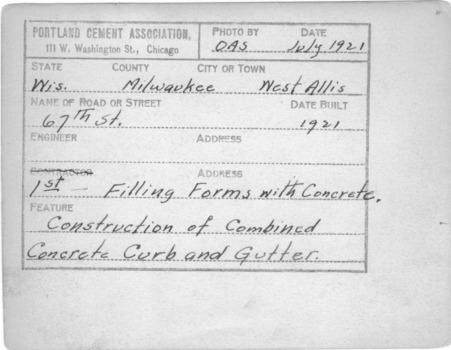 PORTLAND CEMENT ASSOCIATION, PHOTO BY DATE
111 W. Washington St., Chicago OAS July 1921
STATE COUNTY CITY OR TOWN
Wis. Milwaukee West Allis
NAME OF ROAD OR STREET DATE BUILT
67th St. 1921
ENGINEER ADDRESS
CONTRACTOR ADDRESS
1st — Filling Forms with Concrete.
FEATURE
Construction of Combined
Concrete Curb and Gutter.